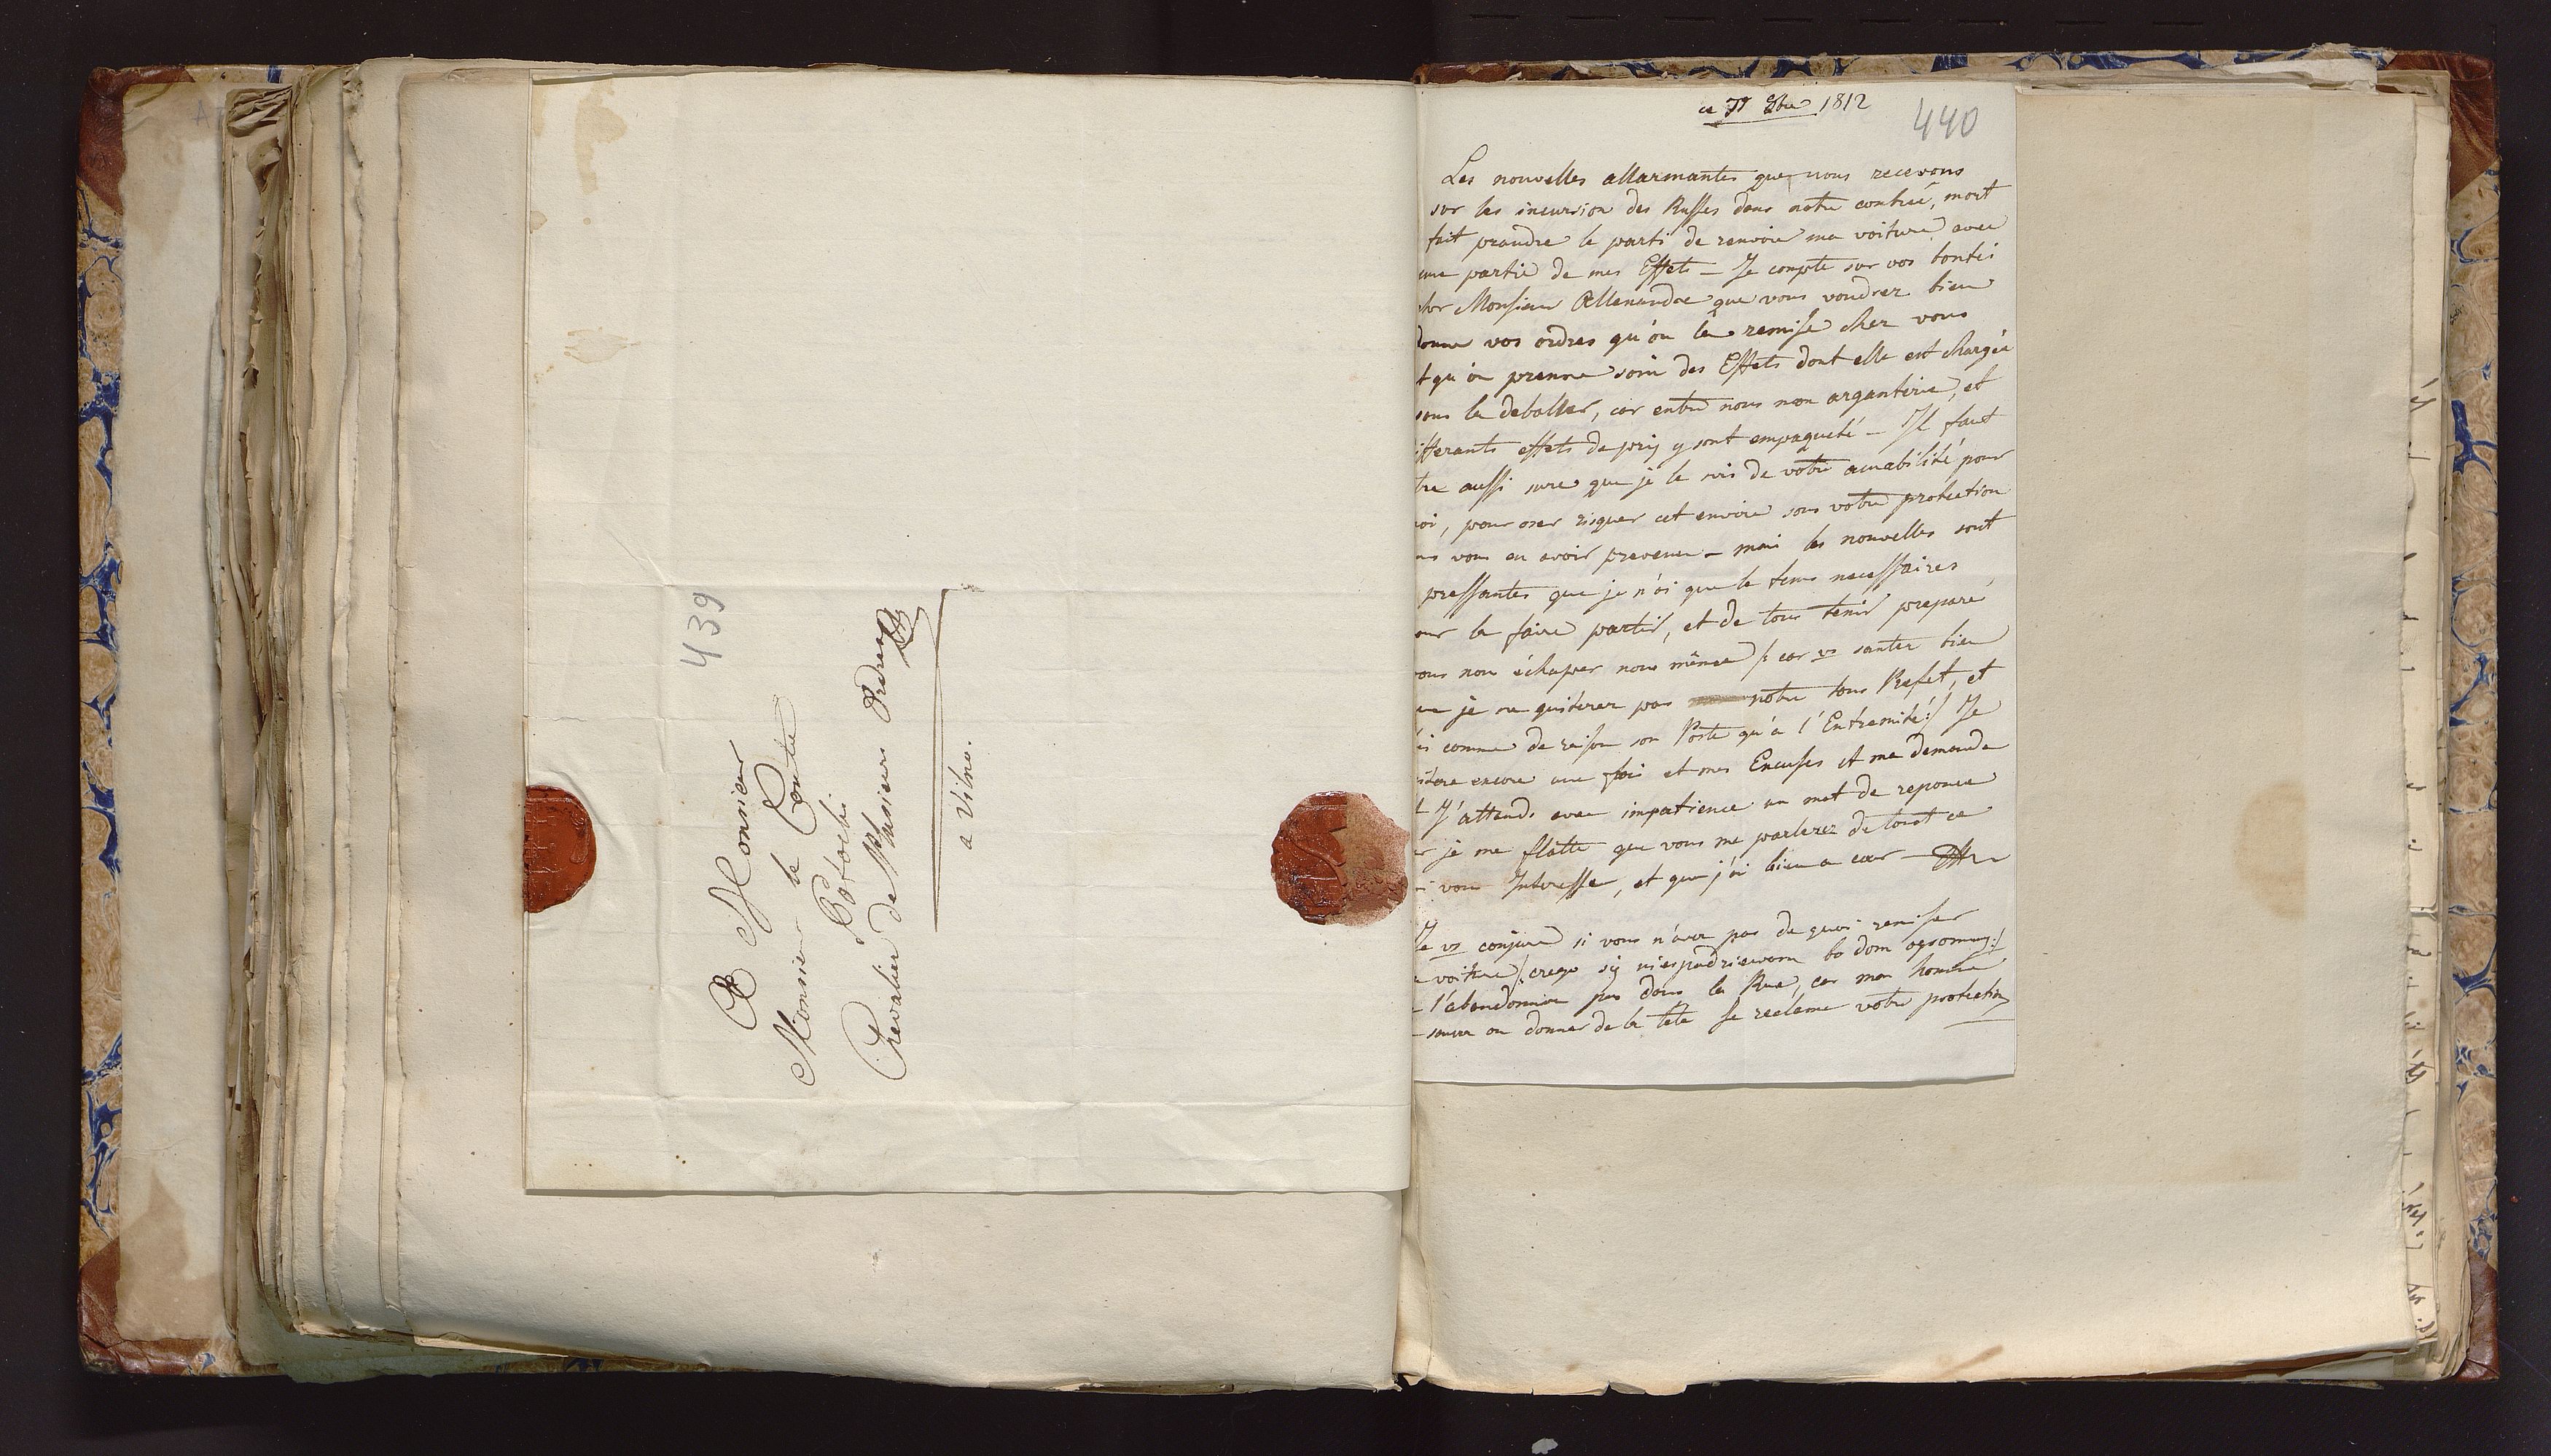 439
A Monsieur
Monsieur le Comte
Potocki
Chevalier de Plusieurs Ordres
a Vilna.
ce 1812
440
Les nouvelles allarmantes que nous recevons
sur les incursion des Russes dans notre contrée, mont
fait prandre le parti de renvoie ma voiture avec
une partie de mes Effets – Je compte sur vos bontés
cher Monsieur Allexandre que vous voudrez bien
donner vos ordres qu'on la remise chez vous
et qu'on prenne soin des Effets dont elle est chargée
sans la deballer, car entre nous mon arganterie, et
differants effets de prix y sont empaqueté – Il faut
tre aussi sure que je le suis de votre amabilité pour
moi, pour oser risquer cet envoie sous votre protection
ns vous en avoir prevenu – mai les nouvelles sont
pressantes que je n'ai que le tems necessaires
our la faire partir, et de tous tenir preparé
pour nou échaper nous même /: car vs santez bien
que je ne quiterez pas notre sous Prefet, et
comme de raison son Poste qu'à l'Extremité :/ Je
encore une fois et mes Excuses et ma demande
J'attends avec impatience un mot de reponce
r je me flatte que vous me parlerez de tout ce
i vous Interesse, et que j'ai bien a cœur
Je vs conjure si vous n'avez pas de quoi remiser
voiture /: czego się niespodziewam bo dom ogromny :/
l'abandonner pas dans la Rue, car mon homme
ou donner de la tete Je reclame votre protection